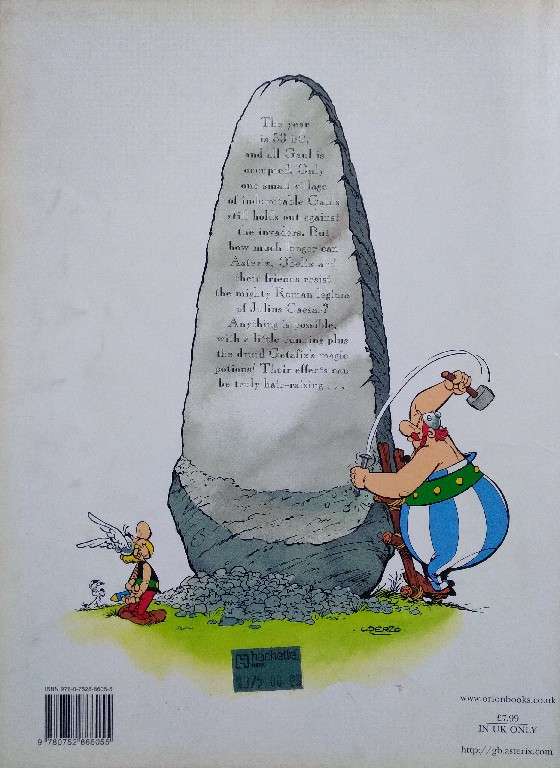 The year
is 50 BC,
and all Gaul is
occupied. Only
one small village
of indomitable Gauls
still holds out against
the invaders. But
how much longer can
Asterix, Obelix and
their friends resist
the mighty Roman legions
of Julius Caesar?
Anything is possible,
with a little cunning plus
the druid Getafix's magic
potions! Their effects can
be truly hair-raising . . .
UDERZO
hachette
ISBN 978-0-7528-6605-5
9 780752 866055
www.orionbooks.co.uk
£7.99
IN UK ONLY
http://gb.asterix.com